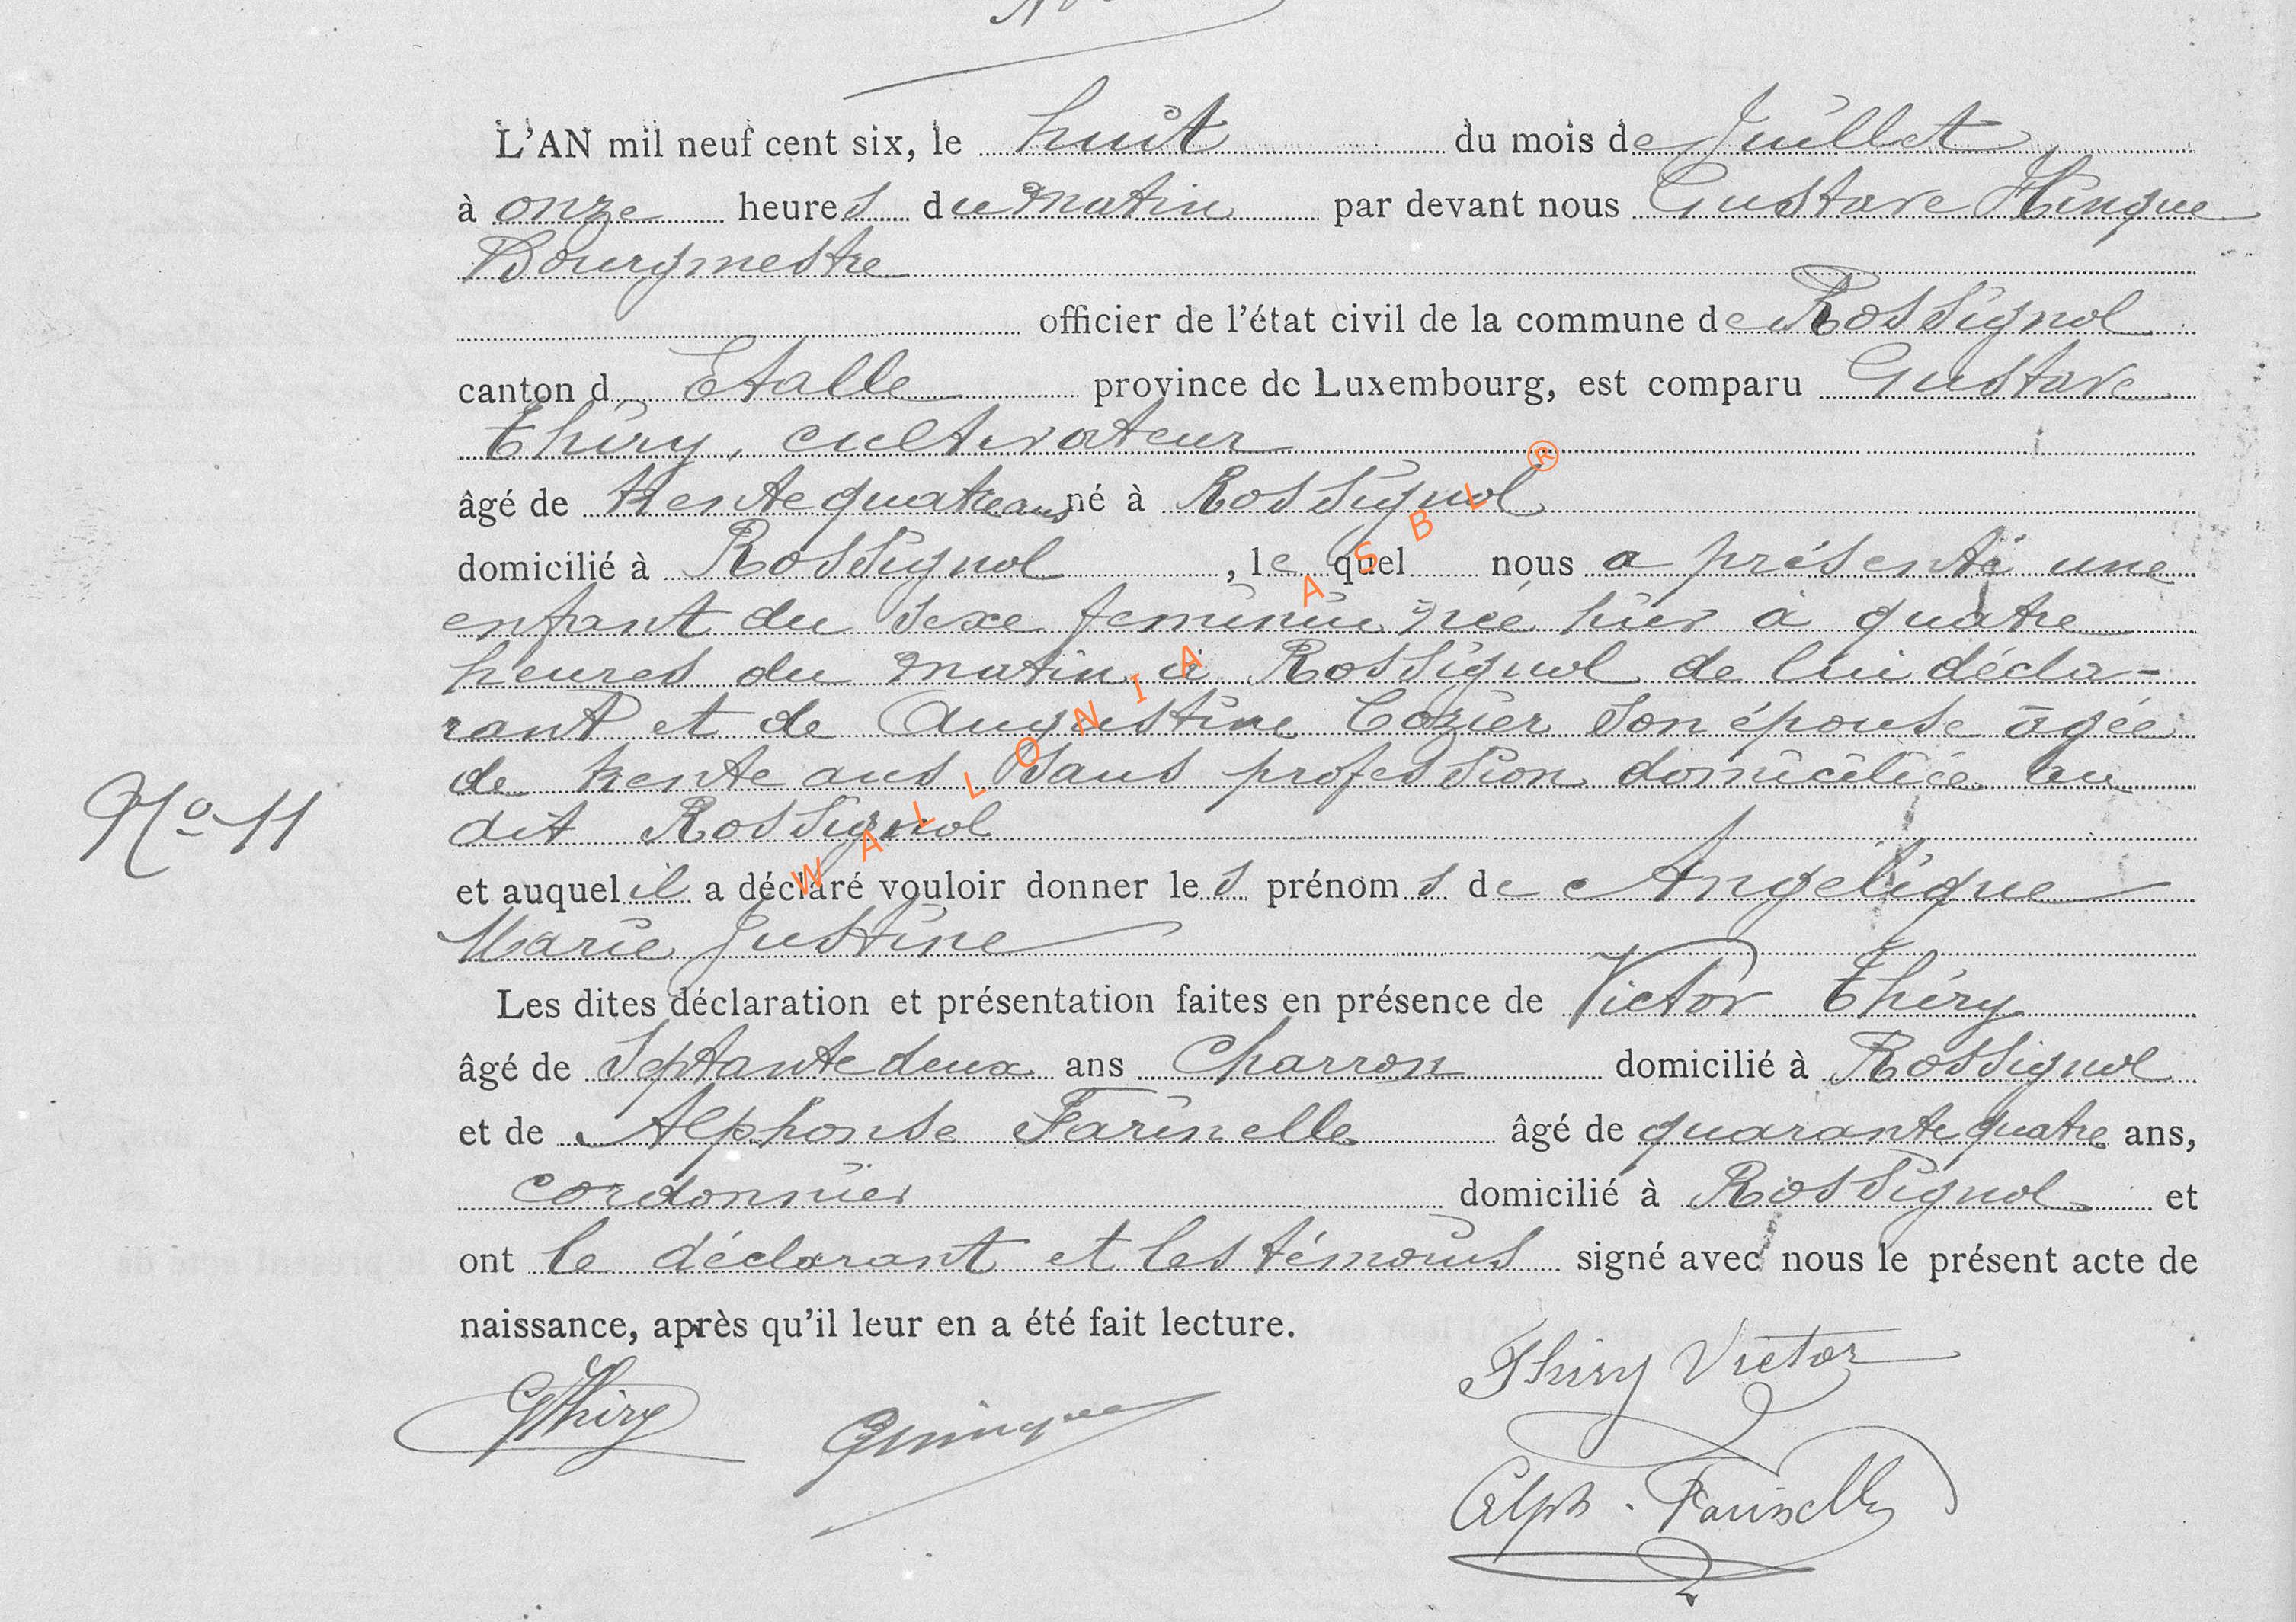 L'AN mil neuf cent six, le huit du mois de Juillet
à onze heures du matin par devant nous Gustave Hinque
Bourgmestre
officier de l'état civil de la commune de Rossignol
canton d Etalle province de Luxembourg, est comparu Gustave
Thiry, cultivateur
âgé de trente quatre ans né à Rossignol
domicilié à Rossignol, le quel nous a présenté une
enfant du sexe feminin née hier à quatre
heures du matin à Rossignol de lui décla-
rant et de Augustine Cozier son épouse âgée
de trente ans sans profession domiciliée au
No 11
dit Rossignol
et auquel il a déclaré vouloir donner les prénoms de Angelique
Marie Justine
Les dites déclaration et présentation faites en présence de Victor Thiry
âgé de Septante deux ans Charron domicilié à Rossignol
et de Alphonse Farinelle âgé de quarante quatre ans,
cordonnier domicilié à Rossignol et
ont le déclarant et les témoins signé avec nous le présent acte de
naissance, après qu'il leur en a été fait lecture.
Thiry Victor
GThiry GHinque
Alph. Farinelle
WALLONIA ASBL ®